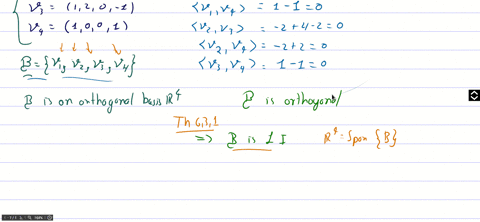 v₃ = (1, 2, 0, -1)
v₄ = (1, 0, 0, 1)
<v₁, v₄> = 1 - 1 = 0
<v₂, v₃> = -2 + 4 - 2 = 0
<v₂, v₄> = -2 + 2 = 0
<v₃, v₄> = 1 - 1 = 0
B = {v₁, v₂, v₃, v₄}
B is on orthogonal basis R⁴
B is orthogonal
Th 6,3,1
=> B is L I
R⁴ = Span {B}